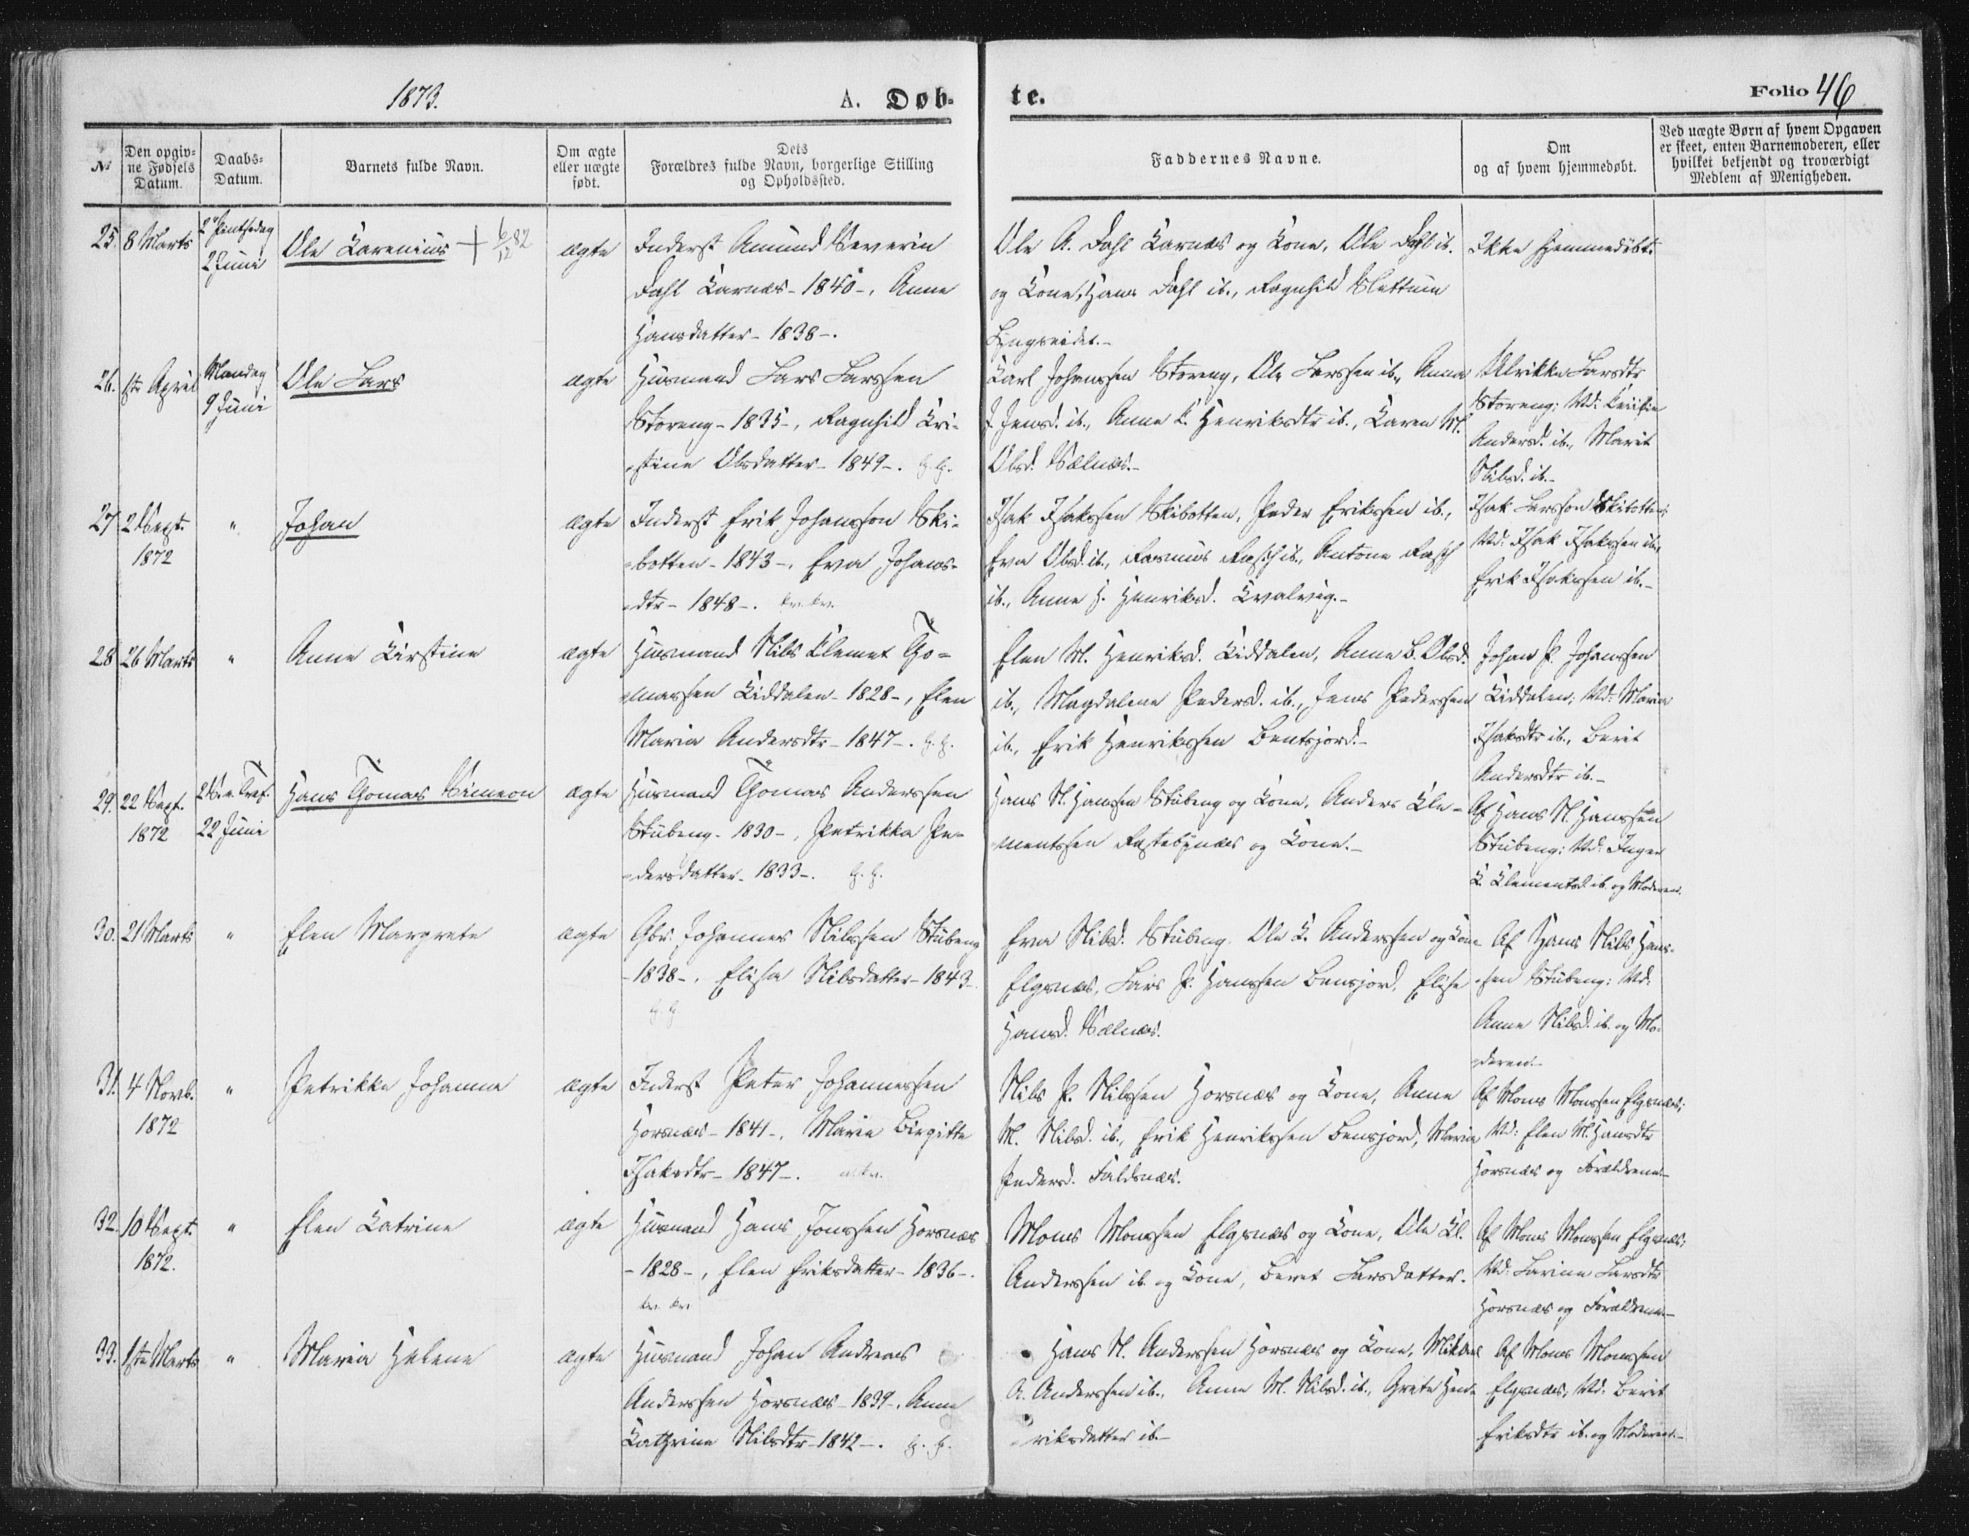 1873.
A. Døb-
te.
Folio 46
No
Den opgiv-
ne Fødsels
Datum.
Daabs-
Datum.
Barnets fulde Navn.
Om ægte
eller uægte
født.
Dets
Forældres fulde Navn, borgerlige Stilling
og Opholdssted.
Faddernes Navne.
Om
og af hvem hjemmedøbt.
Ved uægte Børn af hvem Opgaven
er skeet, enten Barnemoderen, eller
hvilket bekjendt og troværdigt
Medlem af Menigheden.
25. 8 Marts
2 Pintsedag
2 Juni
Ole Karenius + 6/12 82
ægte
Inderst Amund Severin
Dahl Karnæs - 1840 -, Anne
Hansdatter - 1838 -.
Ole A. Dahl Karnæs og Kone, Ole Dahl ib.
og Kone, Hans Dahl ib., Ragnhild Slettum
Lyngseidet. -
Ikke hjemmedøbt.
26. 1ste April
Mandag
9 Juni
Ole Lars
ægte
Husmand Lars Larssen
Storeng - 1835 -, Ragnhild Kri-
stine Olsdatter - 1849 -.
Karl Johanssen Storeng, Ole Larssen ib., Anna
J. Jensd. ib., Anne K. Henriksdtr ib., Karen M.
Olsd. Sælnæs. -
Ulrikke Larsdtr
Storeng; Vd:
Andersd. ib., Marit
Nilsd. ib. -
27. 2 Sept.
1872
"
Johan
ægte
Inderst Erik Johansson Ski-
botten - 1843 -, Eva Johans-
dtr - 1848 -. kv. kv.
Isak Isaksen Skibotten, Peder Eriksen ib.,
Eva Olsd. ib., Rasmus Rasch ib., Antone Rasch
ib., Anne H. Henriksd. Kvalvig. -
Isak Larsson Skibotten;
Vd: Isak Isaksen ib.,
Erik Isaksen ib. -
28. 26 Marts
"
Anne Kirstine
ægte
Husmand Nils Klemet To-
massen Kiddalen - 1828 -, Elen
Maria Andersdtr - 1847 -.
Elen M. Henriksd. Kiddalen, Anne B. Olsd.
ib., Magdalene Pedersd. ib., Jens Pederssen
ib., Erik Henrikssen Bentsjord. -
Johan P. Johanssen
Kiddalen; Vd: Maria
Isaksdtr ib., Berit
Andersdtr ib. -
29. 22 Sept.
1872
2 S. e. Tref.
22 Juni
Hans Thomas Simeon
ægte
Husmand Thomas Anderssen
Stubeng - 1830 -, Petrikka Pe-
dersdatter - 1833 -.
Hans N. Hanssen Stubeng og Kone, Anders Kle-
mentssen Rastebynæs og Kone. -
Af Hans N. Hanssen
Stubeng; Vd: Inger
K. Klementsd. ib. og Moderen.
30. 21 Marts
"
Elen Margrete
ægte
Gbr. Johannes Nilssen Stubeng
- 1838 -, Elisa Nilsdatter - 1843 -
Eva Nilsd. Stubeng, Ole K. Anderssen og Kone
Elgsnæs, Lars P. Hanssen Bensjord, Elise
Hansd. Sælnæs.
Af Hans Nils Hans-
sen Stubeng; Vd:
Anne Nilsd. ib. og Mo-
deren. -
31. 4 Novb.
1872
"
Petrikke Johanna
ægte
Inderst Peter Johannessen
Horsnæs - 1841 -, Maria Birgitte
Isaksdtr - 1847 -.
Nils P. Nilssen Horsnæs og Kone, Anne
M. Nilsd. ib., Erik Henrikssen Bensjord, Maria
Pedersd. Faldsnæs.
Af Mons Monssen Elgsnæs;
Vd: Elen M. Hansdtr
Horsnæs og Forældrene. -
32. 10 Sept.
1872.
"
Elen Katrine
ægte
Husmand Hans Jonssen Horsnæs
- 1828 -, Elen Eriksdatter - 1836 -.
kv. kv.
Mons Monssen Elgsnæs og Kone, Ole Kl.
Anderssen ib. og Kone, Beret Larsdatter.
Af Mons Monssen Elgsnæs;
Vd: Larina Larsdtr
Horsnæs og Forældrene. -
33. 1ste Marts
"
Maria Helene
ægte
Husmand Johan Andreas
Anderssen Horsnæs - 1839 -, Anne
Kathrine Nilsdtr - 1842 -.
Hans N. Anderssen Horsnæs og Kone, Mikkel
A. Anderssen ib., Anne M. Nilsd. ib., Grete Hen-
riksdatter ib. -
Af Mons Monssen
Elgsnæs, Vd: Berit
Eriksdtr ib. og Moderen. -